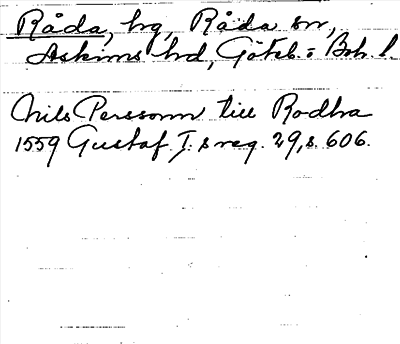 Råda, hg, Råda sn,
Askims hd, Göteb.= Boh. l.
Nils Persson till Rodha
1559 Gustaf I:s reg. 29, s. 606.